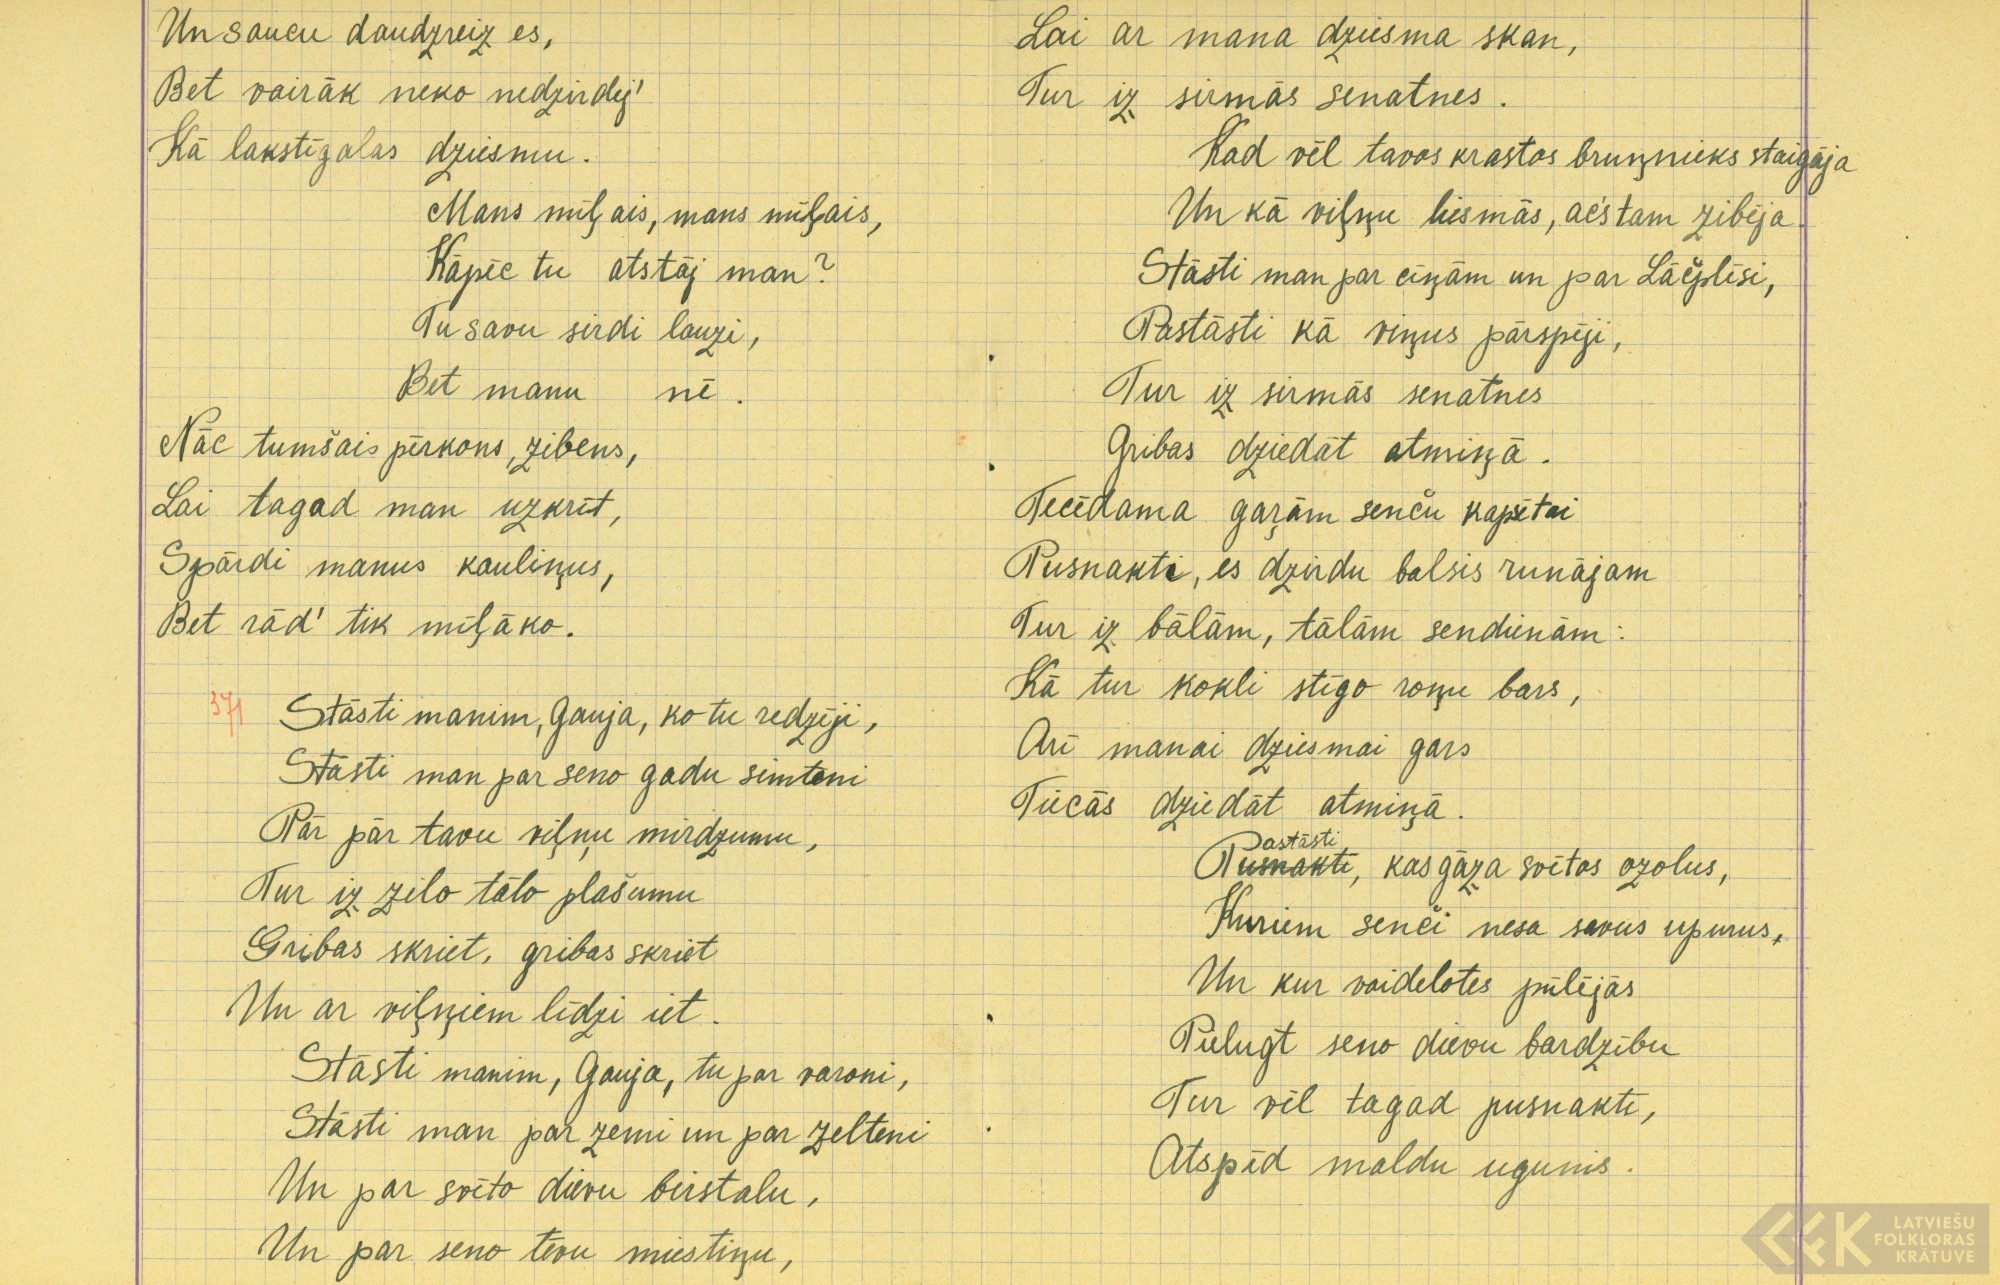 Un saucu daudzreiz es,
Bet vairāk neko nedzirdēj'
Kā lakstīgalas dziesmu.
Mans mīļais, mans mīļais,
Kāpēc tu atstāj man?
Tu savu sirdi lauzi,
Bet manu nē.
Nāc tumšais pērkons, zibens,
Lai tagad man uzkrīt,
Spārdi manus kauliņus,
Bet rād' tik mīļāko.
371
Stāsti manim, Gauja, ko tu redzēji,
Stāsti man par seno gadu simteni
Pār pār tavu viļņu mirdzumu,
Tur iz zilo tālo plašumu
Gribas skriet, gribas skriet
Un ar viļņiem līdzi iet.
Stāsti manim, Gauja, tu par varoni,
Stāsti man par zemi un par zelteni
Un par svēto dievu birstalu,
Un par seno tēvu miestiņu,
Lai ar mana dziesma skan,
Tur iz sirmās senatnes.
Kad vēl tavos krastos bruņnieks staigāja
Un kā viļņu liesmās, acs tam zibēja.
Stāsti man par cīņām un par Lāčplēsi,
Pastāsti kā viņus pārspēji,
Tur iz sirmās senatnes
Gribas dziedāt atmiņā.
Tecēdama gaŗām senču kapsētai
Pusnaktī, es dzirdu balsis runājam
Tur iz bālām, tālām sendienām:
Kā tur kokli stīgo roņu bars,
Arī manai dziesmai gars
Tiecās dziedāt atmiņā.
Pastāsti
Pusnaktī, kas gāza svētos ozolus,
Kuriem senči nesa savus upurus,
Un kur vaidelotes pūlējās
Pielugt seno dievu bardzību
Tur vēl tagad pusnaktī,
Atspīd maldu ugunis.
LATVIEŠU
FOLKLORAS
KRĀTUVE